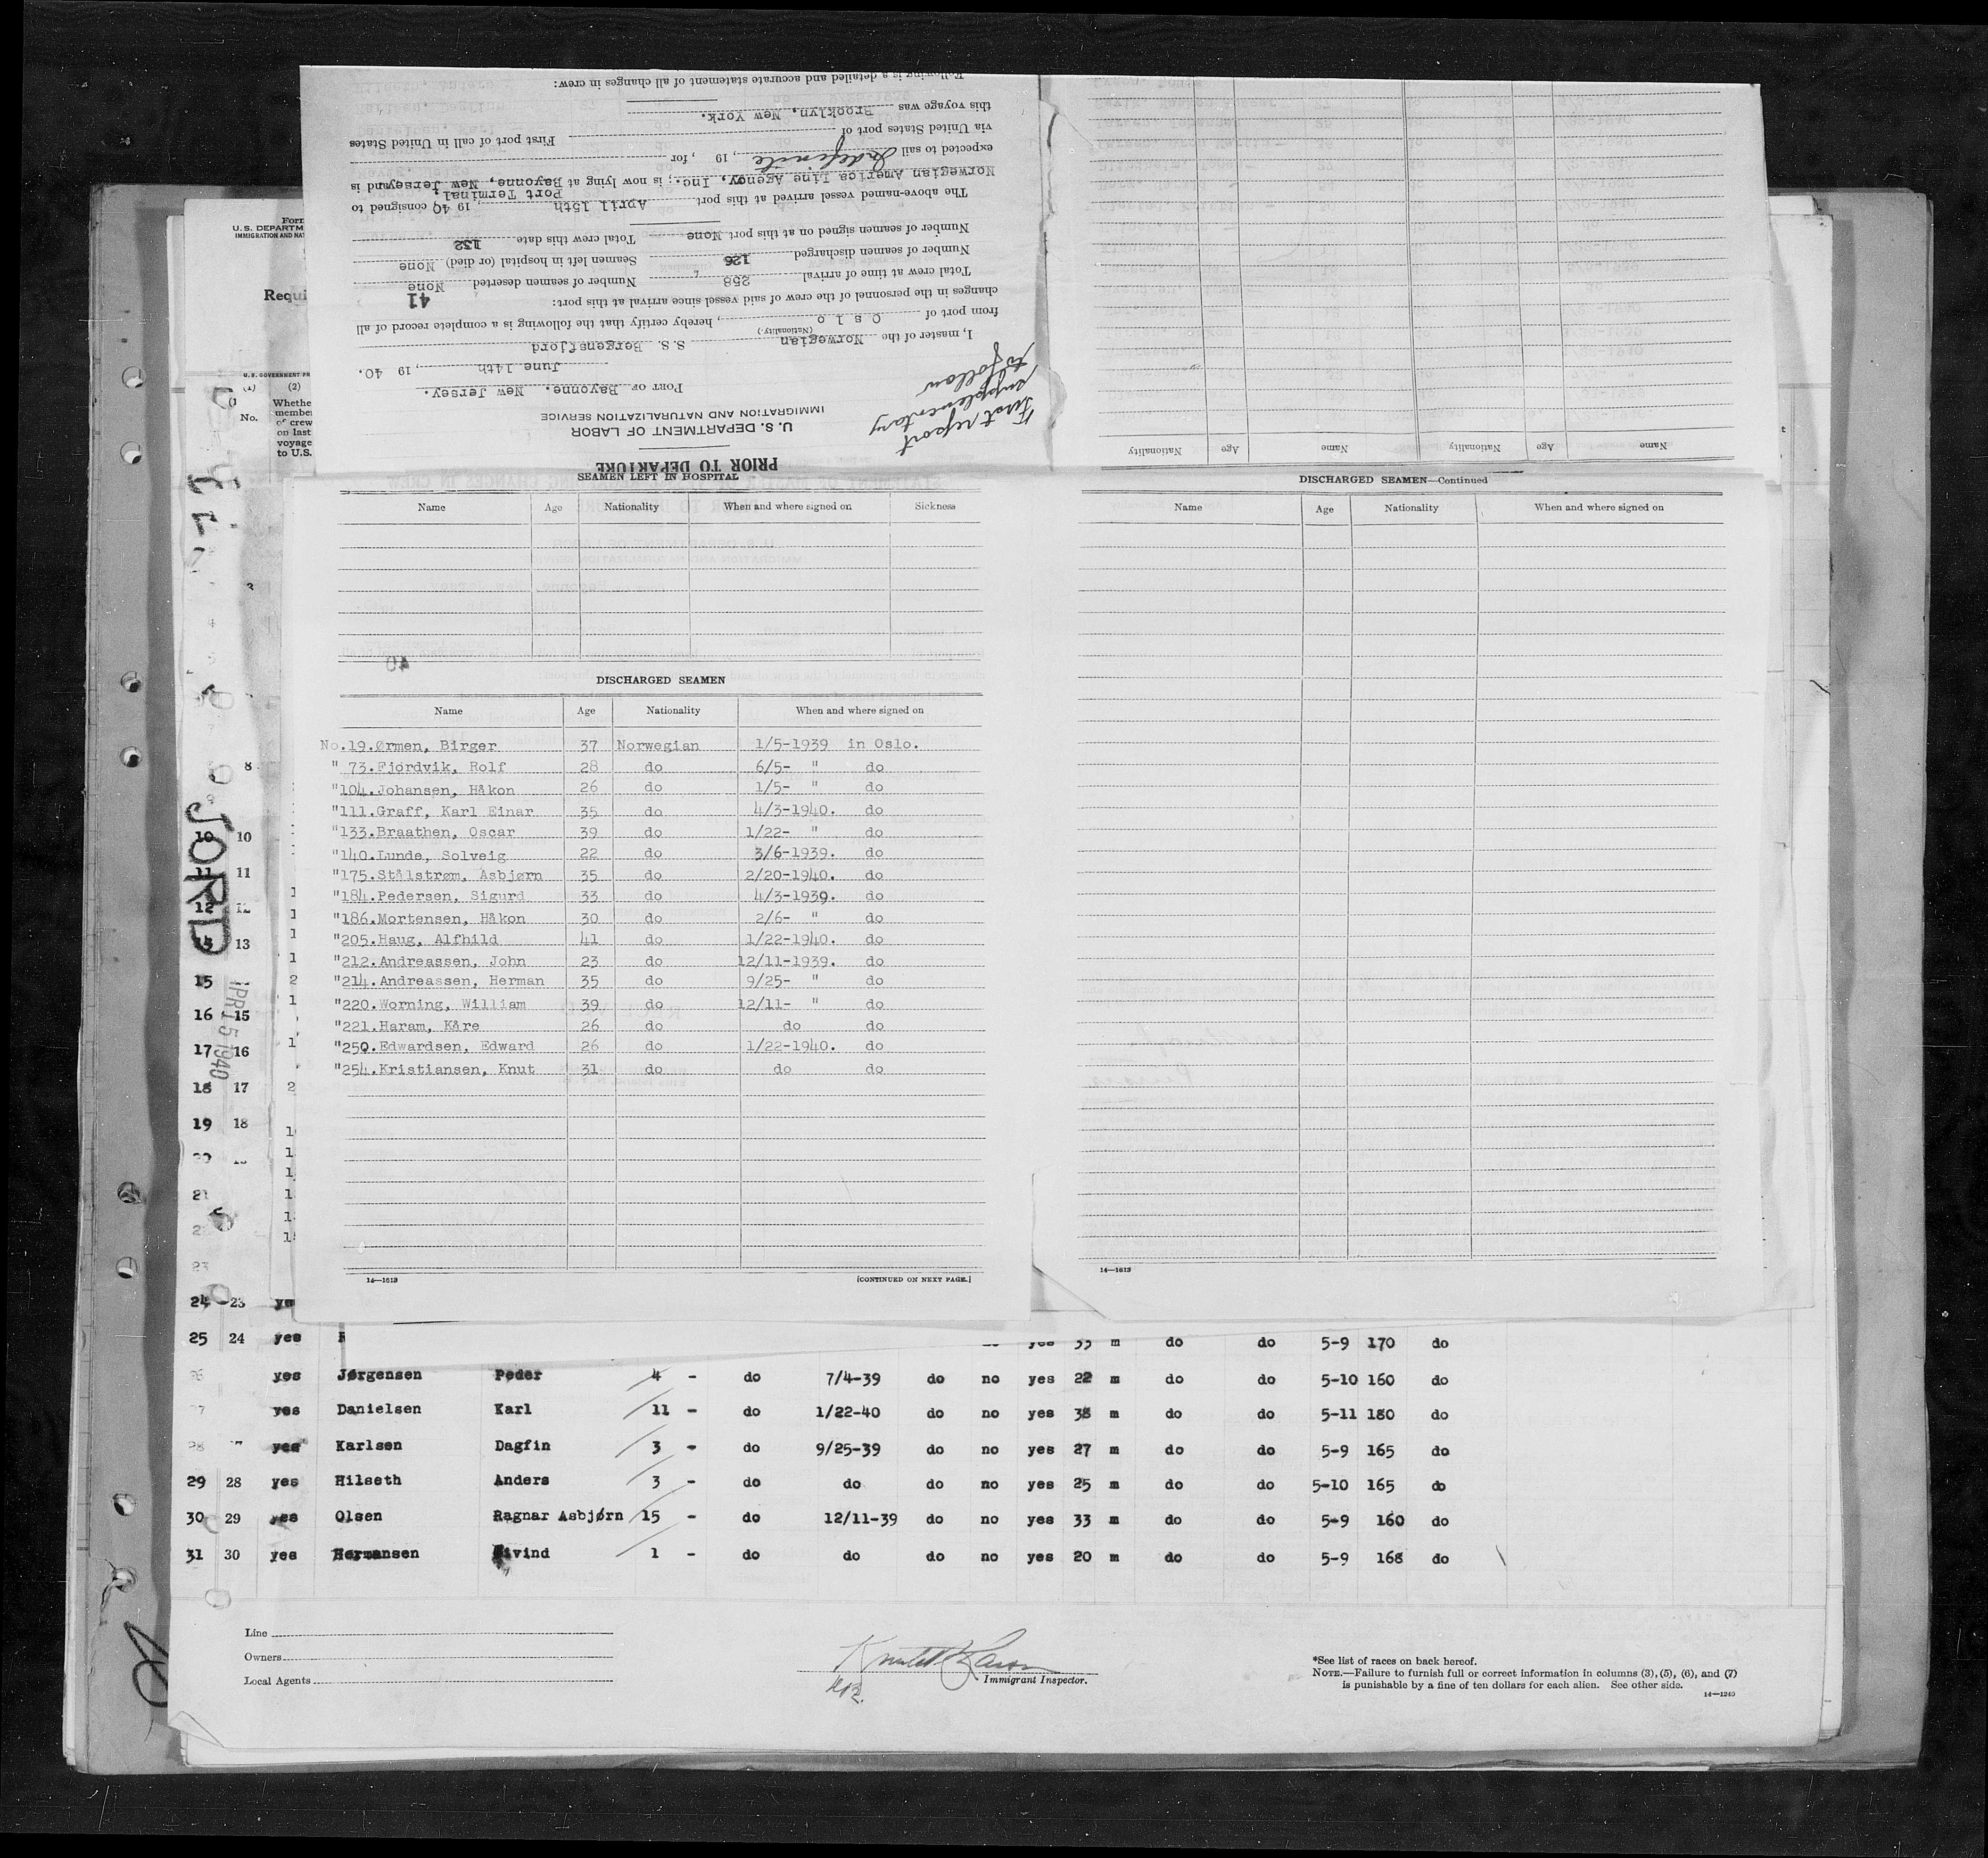 Following is a detailed and accurate statement of all changes in crew:
this voyage was Brooklyn, New York.
via United States port of First port of call in United States
expected to sail Indefinite, 19 , for
Norwegian America Line Agency, Inc.; is now lying at Bayonne, New Jersey and is
Port Terminal,
The above-named vessel arrived at this port April 15th, 1940 consigned to
Number of seamen signed on at this port None Total crew this date 132
Number of seamen discharged 126 Seamen left in hospital (or died) None
Total crew at time of arrival 258 Number of seamen deserted None
changes in the personnel of the crew of said vessel since arrival at this port: 41
from port of Oslo, hereby certify that the following is a complete record of all
(Nationality.)
I, master of the Norwegian S.S. Bergensfjord
June 14th, 19 40.
PORT OF Bayonne. New Jersey.
IMMIGRATION AND NATURALIZATION SERVICE
U. S. DEPARTMENT OF LABOR
First report
supplementary
to follow
PRIOR TO DEPARTURE
Name Age Nationality Name Age Nationality
Form
U.S. DEPARTM
IMMIGRATION AND NAT
Requi
U.S. GOVERNMENT PR
(1) (2)
No. Whethe
membe
of crew
on last
voyage
to U.S.
SEAMEN LEFT IN HOSPITAL
Name Age Nationality When and where signed on Sickness
40
DISCHARGED SEAMEN
Name Age Nationality When and where signed on
No.19.Ørmen, Birger 37 Norwegian 1/5-1939 in Oslo.
" 73.Fjordvik, Rolf 28 do 6/5- " do
"104.Johansen, Håkon 26 do 1/5- " do
"111.Graff, Karl Einar 35 do 4/3-1940. do
"133.Braathen, Oscar 39 do 1/22- " do
"140.Lunde, Solveig 22 do 3/6-1939. do
"175.Stålstrøm, Asbjørn 35 do 2/20-1940. do
"184.Pedersen, Sigurd 33 do 4/3-1939. do
"186.Mortensen, Håkon 30 do 2/6- " do
"205.Haug, Alfhild 41 do 1/22-1940. do
"212.Andreassen, John 23 do 12/11-1939. do
"214.Andreassen, Herman 35 do 9/25- " do
"220.Worning, William 39 do 12/11- " do
"221.Haram, Kåre 26 do do do
"250.Edwardsen, Edward 26 do 1/22-1940. do
"254.Kristiansen, Knut 31 do do do
14—1613 [CONTINUED ON NEXT PAGE.]
DISCHARGED SEAMEN—Continued
Name Age Nationality When and where signed on
14—1613
3
8
JORD
10 10
11 11
12 12
13
15
16 15
17 16
18 17
19 18
20
21
23
1940
24 23 ye
25 24 yes yes 33 m do do 5-9 170 do
yes Jørgensen Peder 4 - do 7/4-39 do no yes 22 m do do 5-10 160 do
yes Danielsen Karl 11 - do 1/22-40 do no yes 38 m do do 5-11 180 do
28 yes Karlsen Dagfin 3 - do 9/25-39 do no yes 27 m do do 5-9 165 do
29 28 yes Hilseth Anders 3 - do do do no yes 25 m do do 5-10 165 do
30 29 yes Olsen Ragnar Asbjørn 15 - do 12/11-39 do no yes 33 m do do 5-9 160 do
31 30 yes Hermansen Eivind 1 - do do do no yes 20 m do do 5-9 168 do
Line
Owners
Local Agents
Immigrant Inspector.
*See list of races on back hereof.
NOTE.—Failure to furnish full or correct information in columns (3), (5), (6), and (7)
is punishable by a fine of ten dollars for each alien. See other side.
14—1240